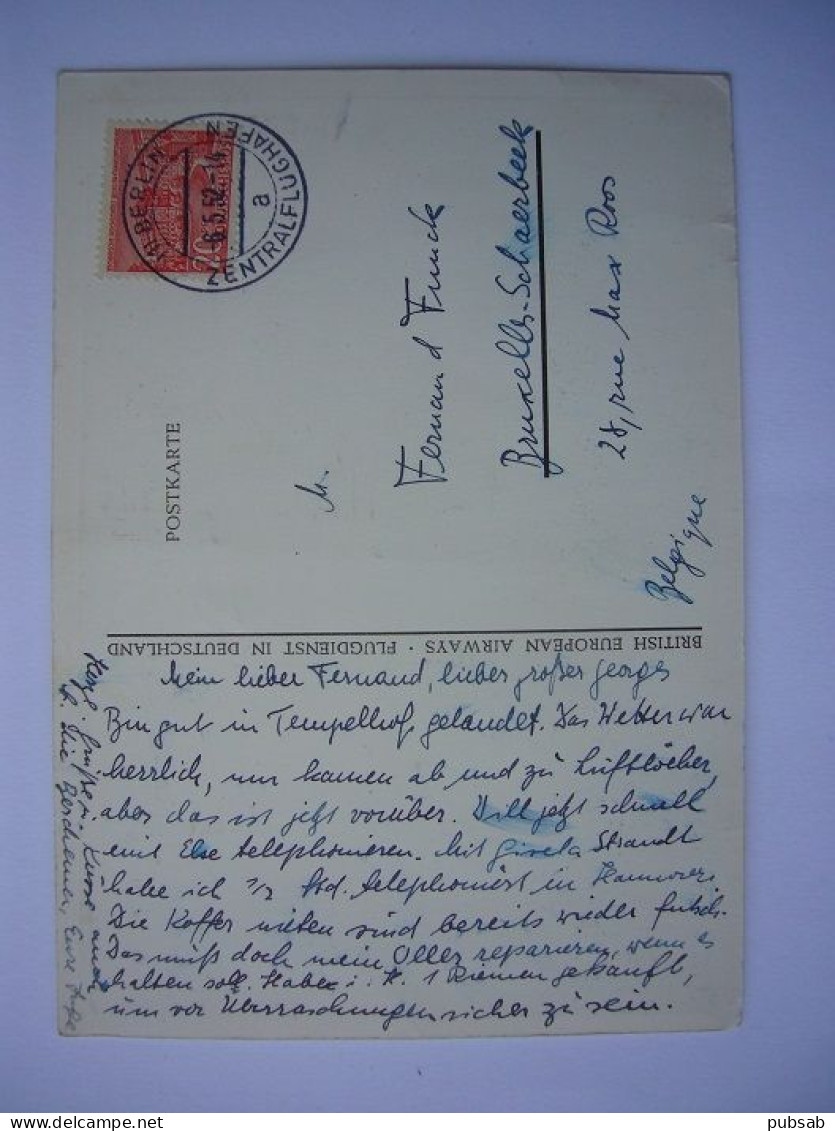 BERLIN
- 6.5.52 -14
a
ZENTRALFLUGHAFEN
20
POSTKARTE
M.
Fernand Funck
Bruxelles-Schaerbeek
28, rue Max Roos
Belgique
BRITISH EUROPEAN AIRWAYS · FLUGDIENST IN DEUTSCHLAND
Mein lieber Fernand, lieber großer Georges
Bin gut in Tempelhof gelandet. Das Wetter war
herrlich, nur kamen ab und zu Luftlöcher,
aber das ist jetzt vorüber. Will jetzt schnell
mit Else telephonieren. Mit Gisela Strandt
habe ich 1/2 Std. telephoniert in Hannover.
Die Koffer nieten sind bereits wieder futsch.
Das muß doch mein Oller reparieren, wenn es
halten soll. Habe i. H. 1 Riemen gekauft,
um vor Überraschungen sicher zu sein.
Herzl. Grüße u. Küsse auch
Eure
pubsab